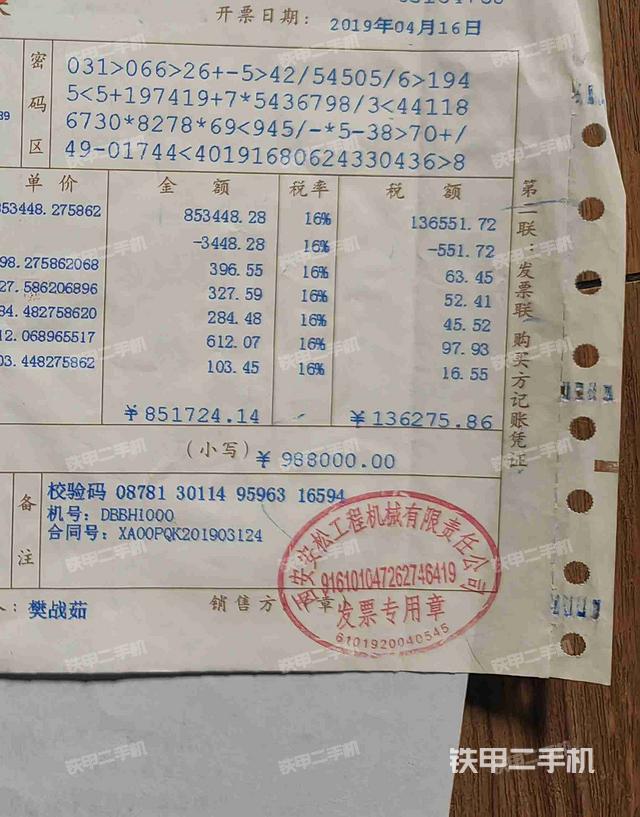 开票日期: 2019年04月16日
密码区
031>066>26+-5>42/54505/6>194
5<5+197419+7*5436798/3<44118
6730*8278*69<945/-*5-38>70+/
49-01744<40191680624330436>8
89
单价 金额 税率 税额
853448.275862 853448.28 16% 136551.72
-3448.28 16% -551.72
98.275862068 396.55 16% 63.45
27.586206896 327.59 16% 52.41
84.482758620 284.48 16% 45.52
12.068965517 612.07 16% 97.93
03.448275862 103.45 16% 16.55
¥851724.14 ¥136275.86
(小写) ¥988000.00
第二联:发票联 购买方记账凭证
备注
校验码 08781 30114 95963 16594
机号: DBBH1000
合同号: XAOOPQK201903124
:樊战茹
销售方 章
松工程机械有限责任公司
916101047262746419
发票专用章
6101920040545
铁甲二手机